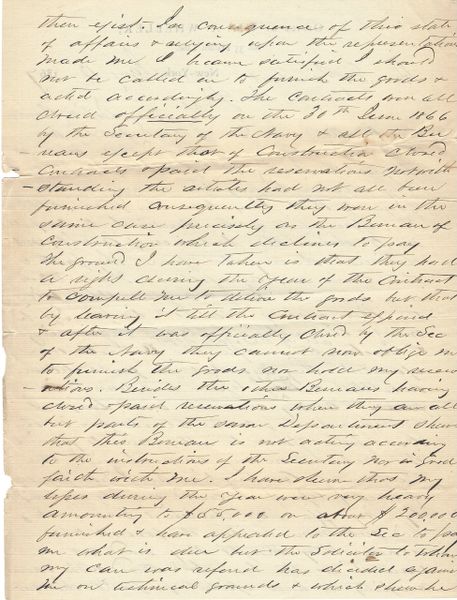 then exist. In consequence of this state
of affairs & relying upon the representation
made me I became satisfied I should
not be called on to furnish the goods &
acted accordingly. The contracts were all
closed officially on the 30th June 1866
by the Secretary of the Navy & all the Bu
- reaus except that of Construction closed
contracts & paid the reservations notwith
- standing the articles had not all been
furnished consequently they were in the
same case precisely as the Bureau of
Construction which declines to pay
The ground I have taken is that they had
a right during the year of the Contract
to compell me to deliver the goods but that
by leaving it till the Contract expired
& after it was officially closed by the Sec
of the Navy they cannot now oblige me
to furnish the goods nor hold my reserv
- ations. Besides the other Bureaus having
closed & paid reservations when they are all
but parts of the same Department shows
that this Bureau is not acting according
to the instructions of the Secretary nor in good
faith with me. I have shown that my
losses during the year were very heavy
amounting to $ 000 on about $200,000
furnished & have appealed to the Sec to pay
me what is due but the Solicitor to whom
my case was referred has decided against
me on technical grounds & which